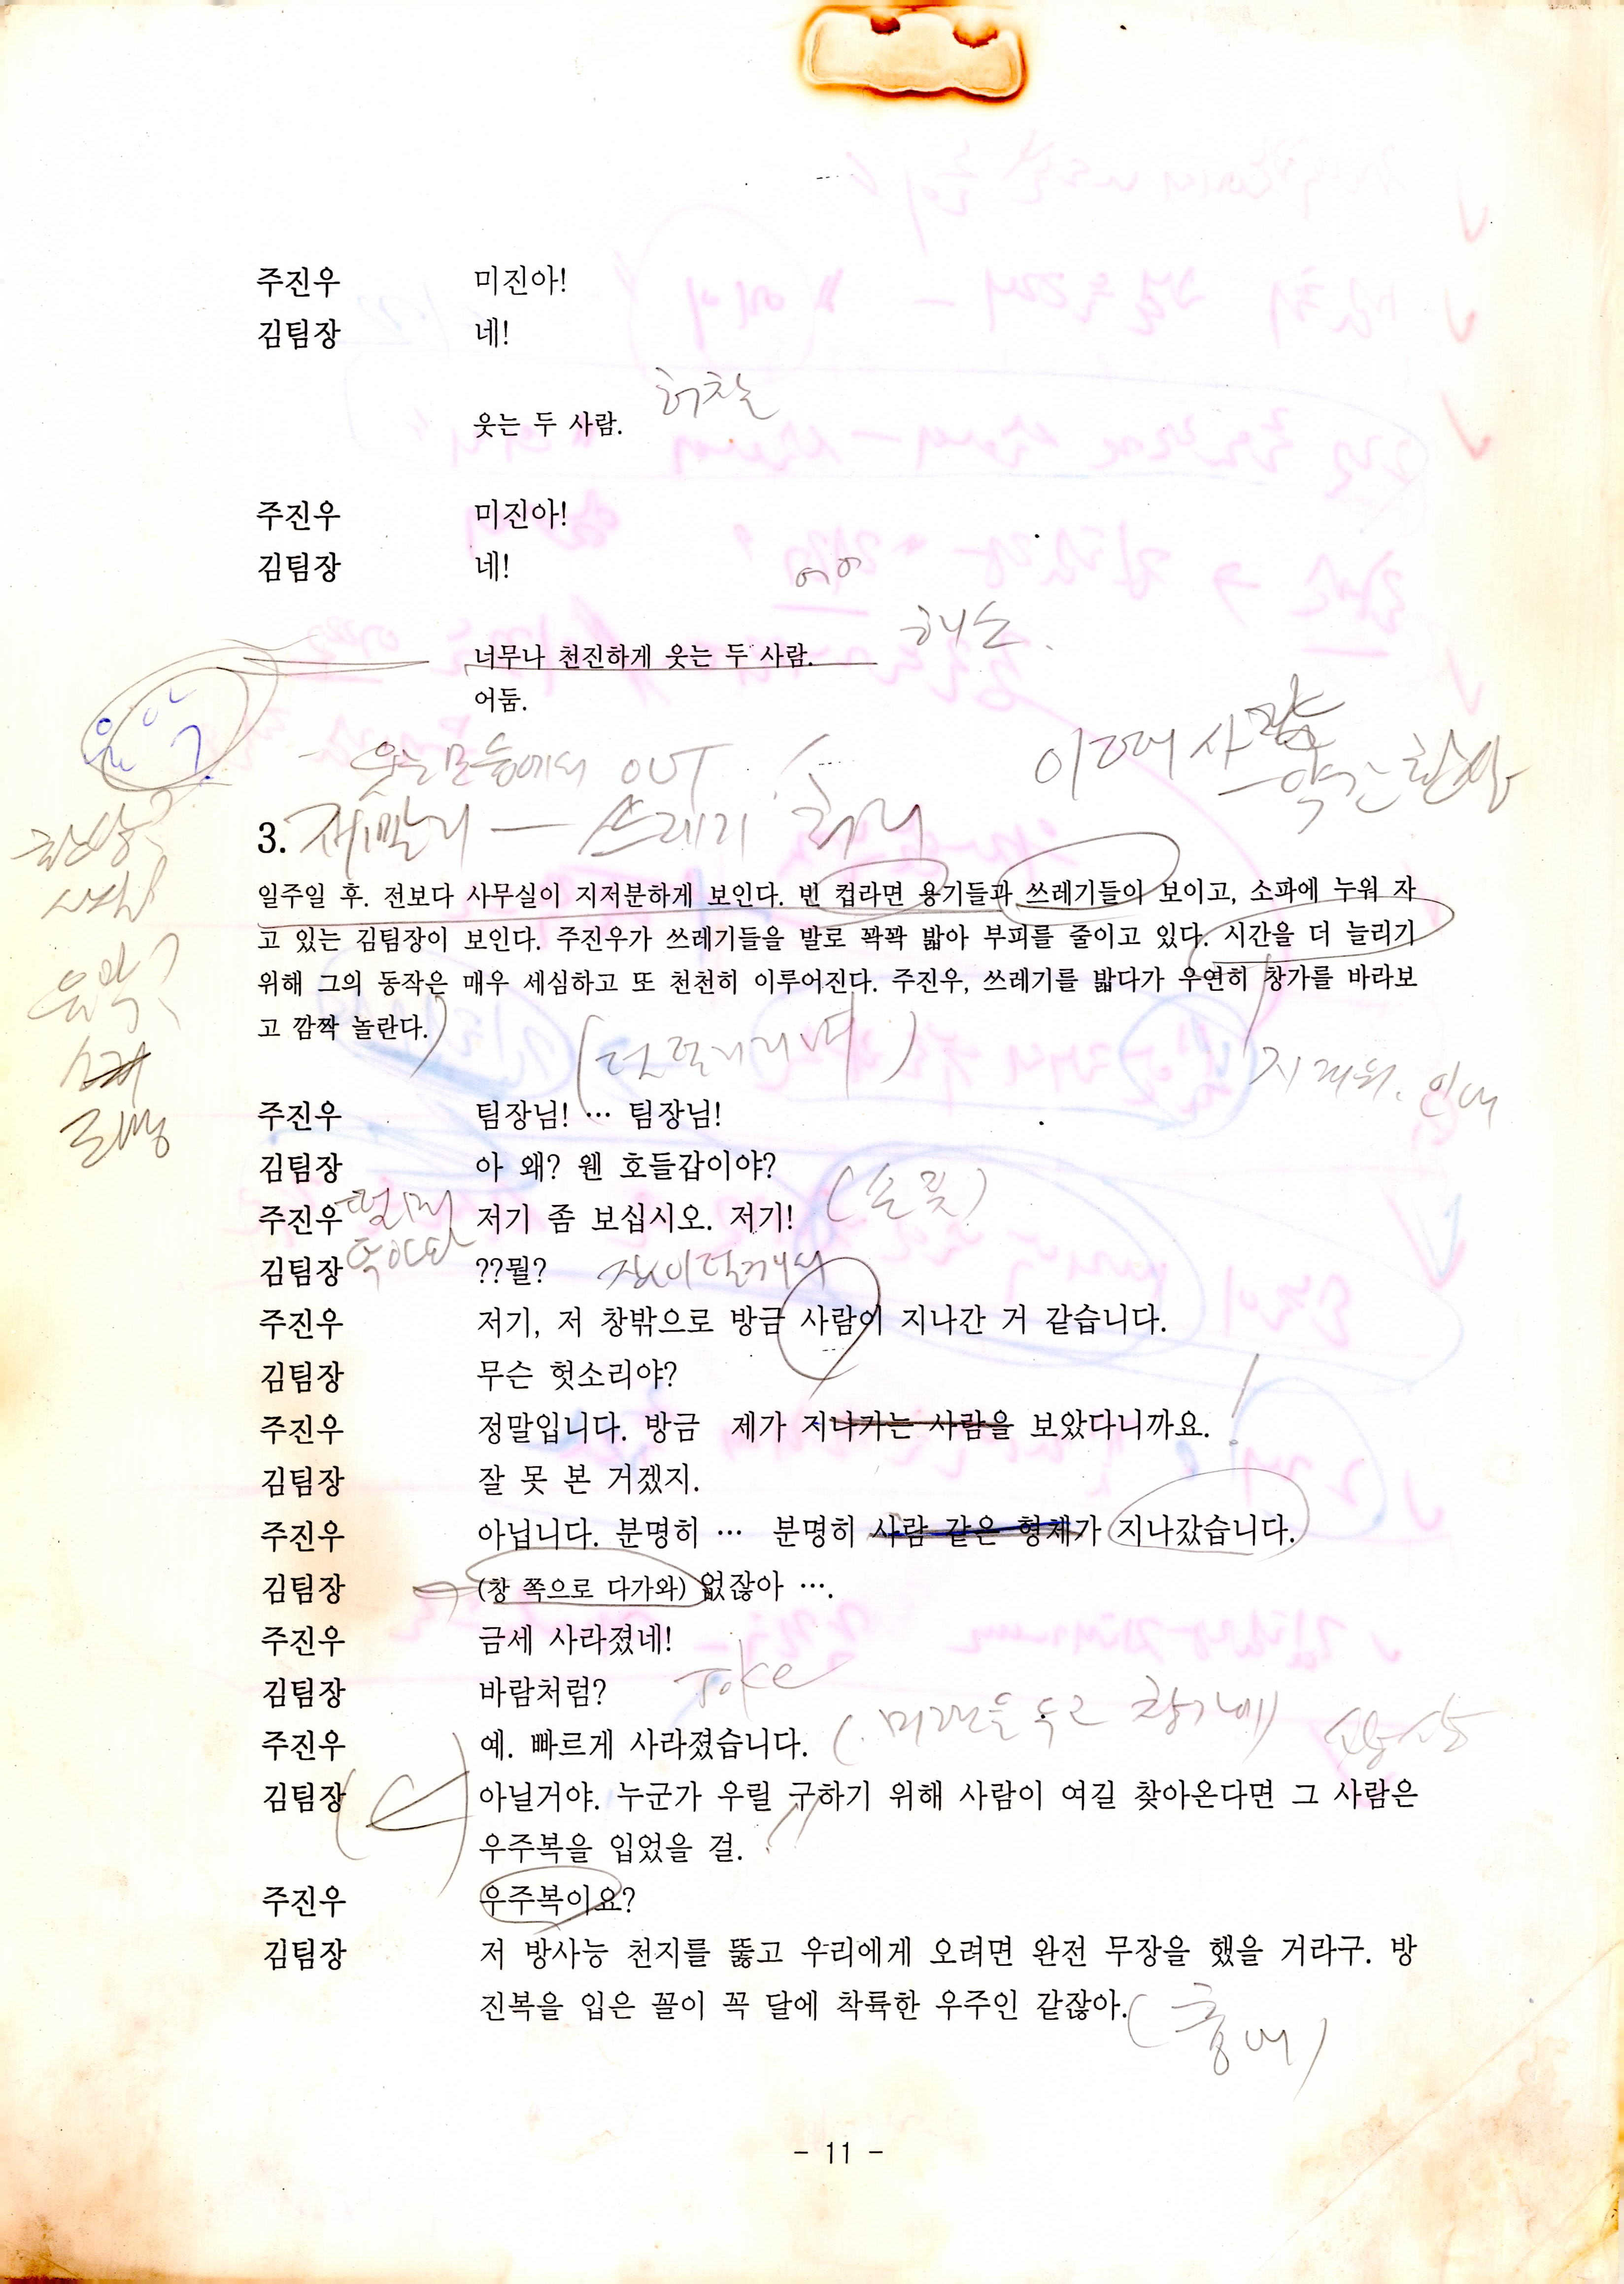 주진우 미진아!
김팀장 네!
웃는 두 사람.
주진우 미진아!
김팀장 네!
어어
해소.
너무나 천진하게 웃는 두 사람.
어둠.
웃는 모습에서 OUT
이때 사람
약간 환상
3. 쓰레기
환상?
일주일 후. 전보다 사무실이 지저분하게 보인다. 빈 컵라면 용기들과 쓰레기들이 보이고, 소파에 누워 자
고 있는 김팀장이 보인다. 주진우가 쓰레기들을 발로 꽉꽉 밟아 부피를 줄이고 있다. 시간을 더 늘리기
위해 그의 동작은 매우 세심하고 또 천천히 이루어진다. 주진우, 쓰레기를 밟다가 우연히 창가를 바라보
고 깜짝 놀란다.
음악?
주진우 팀장님! … 팀장님!
김팀장 아 왜? 웬 호들갑이야?
주진우 저기 좀 보십시오. 저기!
김팀장 ??뭘? 잠이 덜깨서
주진우 저기, 저 창밖으로 방금 사람이 지나간 거 같습니다.
김팀장 무슨 헛소리야?
주진우 정말입니다. 방금 제가 지나가는 사람을 보았다니까요. !
김팀장 잘 못 본 거겠지.
주진우 아닙니다. 분명히 … 분명히 사람 같은 형체가 지나갔습니다.
김팀장 (창 쪽으로 다가와) 없잖아 ….
주진우 금세 사라졌네!
김팀장 바람처럼? Joke
주진우 예. 빠르게 사라졌습니다. (미련을 두고 창가에)
김팀장 아닐거야. 누군가 우릴 구하기 위해 사람이 여길 찾아온다면 그 사람은
우주복을 입었을 걸.
주진우 우주복이요?
김팀장 저 방사능 천지를 뚫고 우리에게 오려면 완전 무장을 했을 거라구. 방
진복을 입은 꼴이 꼭 달에 착륙한 우주인 같잖아. (흉내)
- 11 -